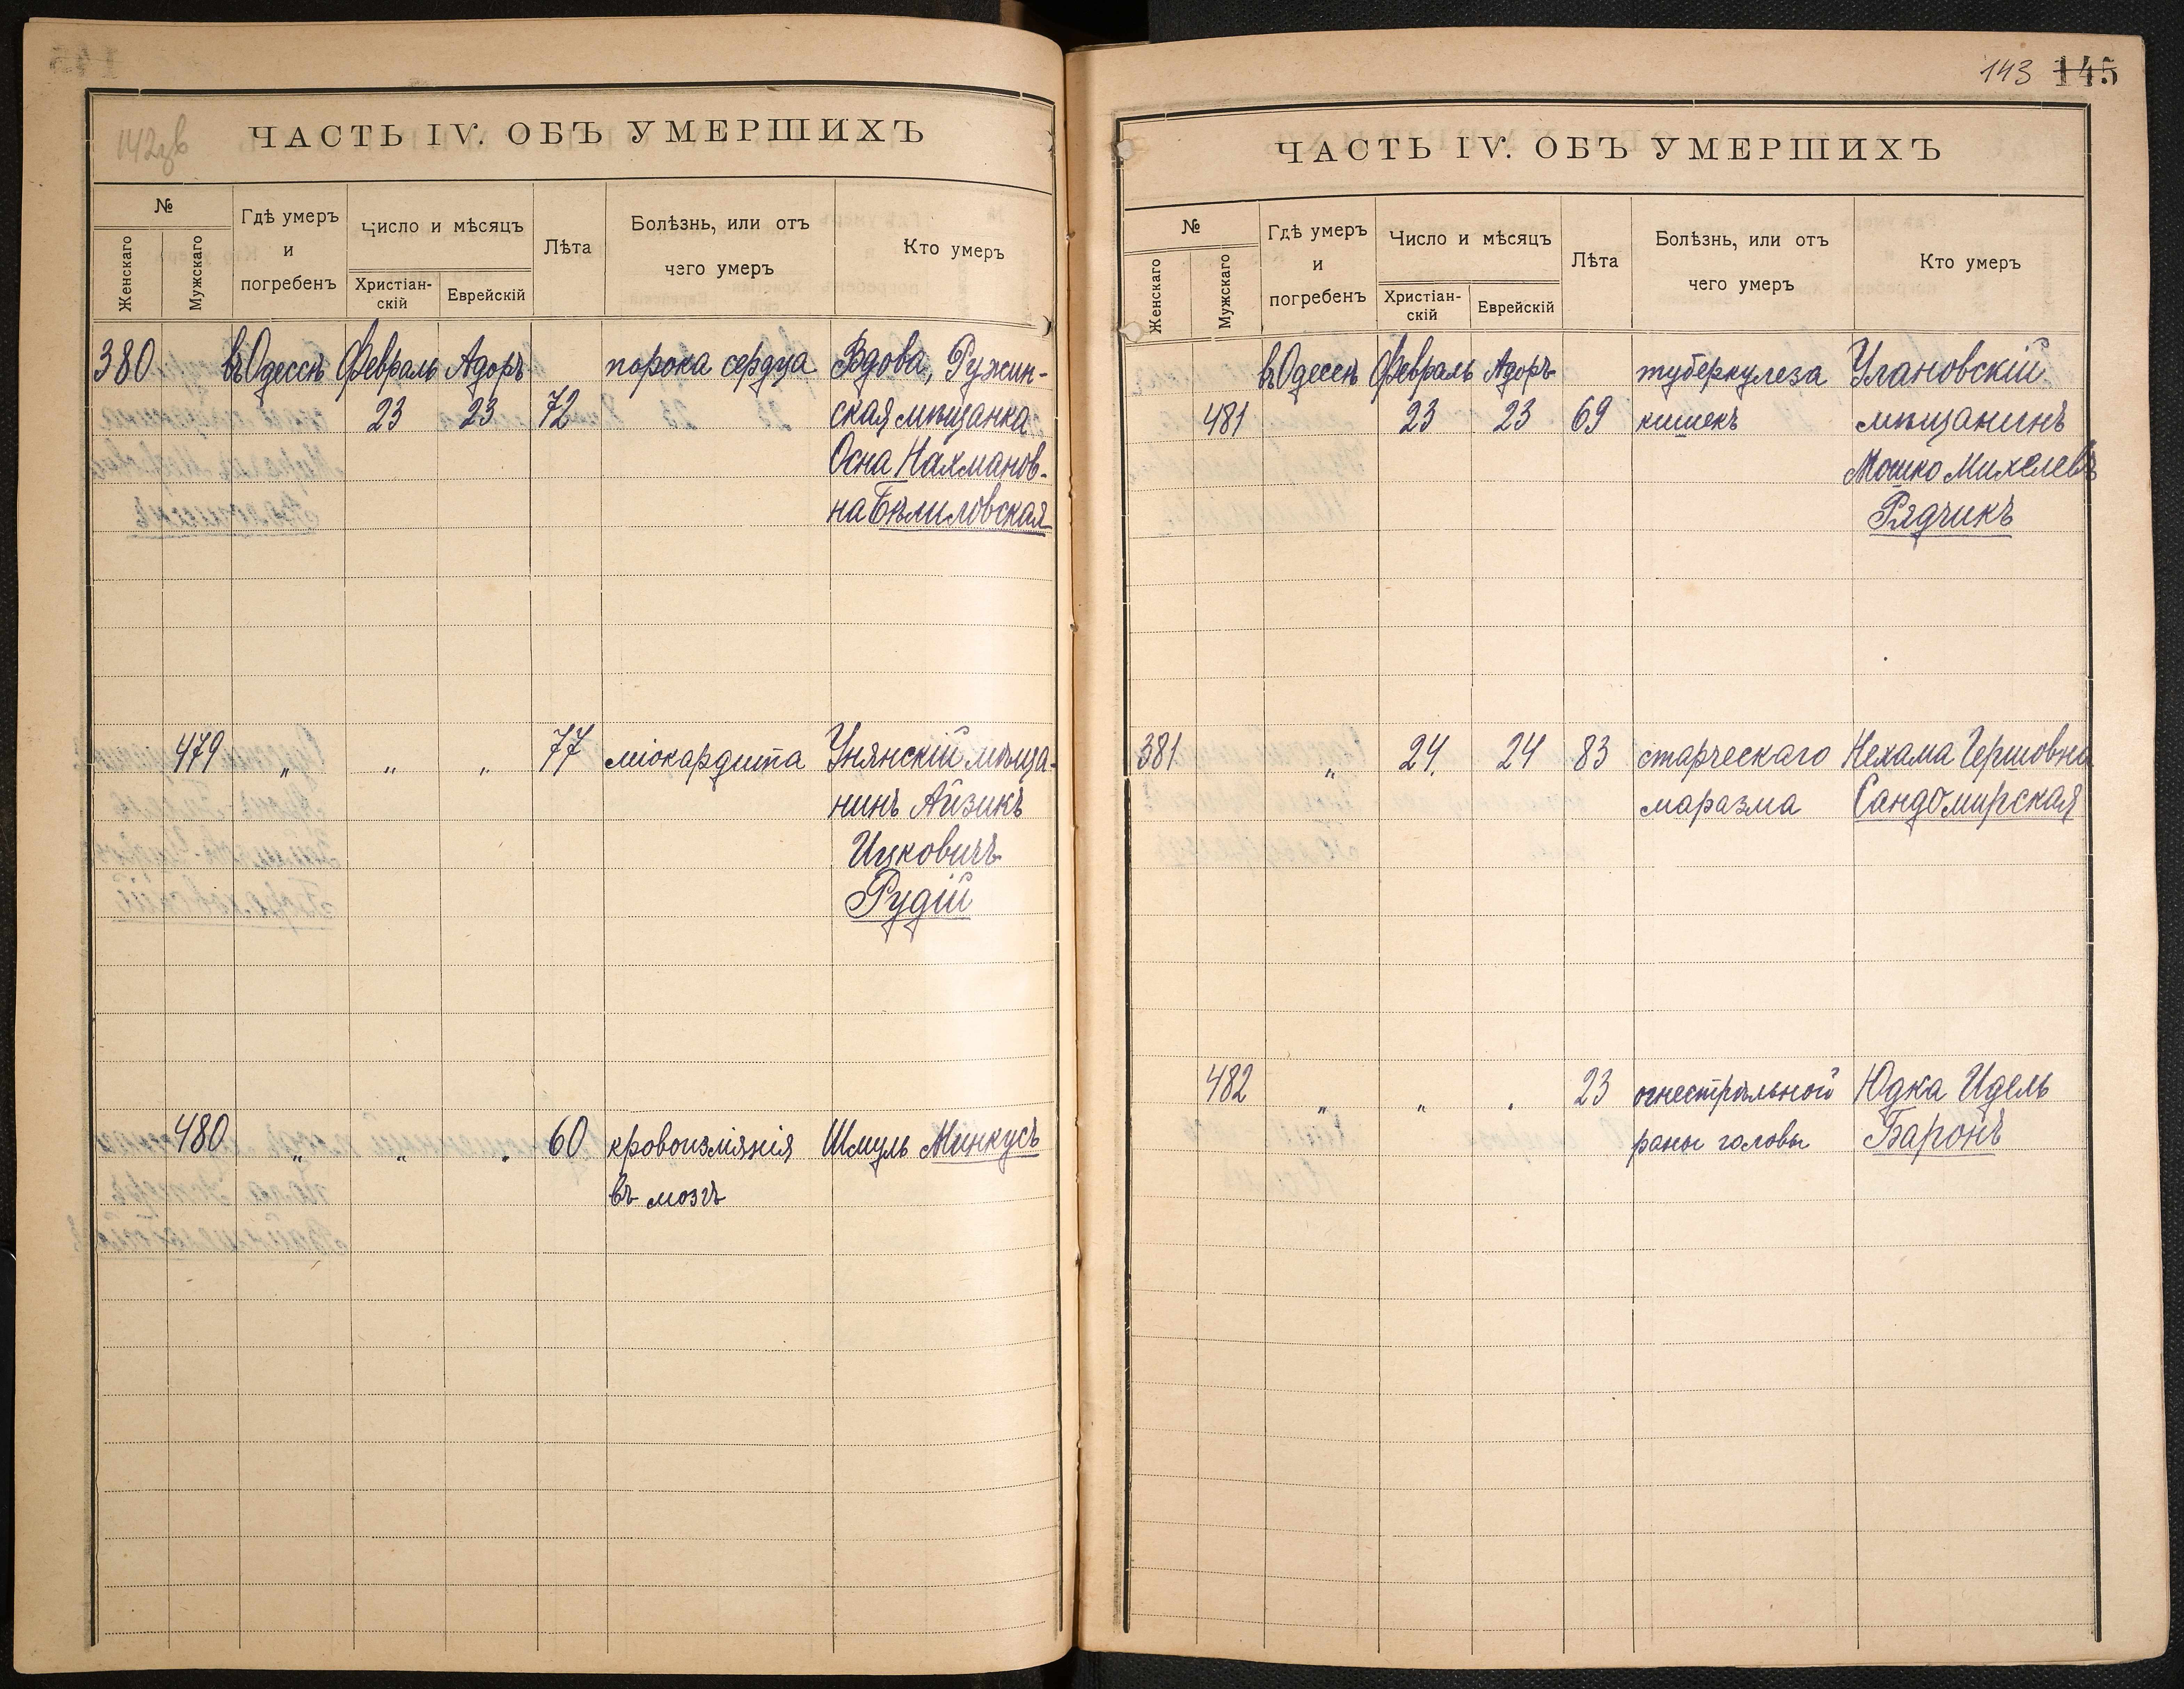 142зв
ЧАСТЬ IV. ОБЪ УМЕРШИХЪ
№
Женскаго
Мужскаго
Гдѣ умеръ
и
погребенъ
Число и мѣсяцъ
Христіан-
скій
Еврейскій
Лѣта
Болѣзнь, или отъ
чего умеръ
Кто умеръ
380 въ Одессѣ Февраль Адоръ порока сердца Вдова, Ружин-
23 23 72 ская мѣщанка
Осна Нахманов-
на Бѣлиловская
479 „ „ „ 77 міокардита Унянскій мѣща-
нинъ Айзикъ
Ицковичъ
Рудій
480 „ „ „ 60 кровоизліянія Шмуль Минкусъ
въ мозгъ
143 145
ЧАСТЬ IV. ОБЪ УМЕРШИХЪ
№
Женскаго
Мужскаго
Гдѣ умеръ
и
погребенъ
Число и мѣсяцъ
Христіан-
скій
Еврейскій
Лѣта
Болѣзнь, или отъ
чего умеръ
Кто умеръ
въ Одессѣ Февраль Адоръ туберкулеза Улановскій
481 23 23 69 кишекъ мѣщанинъ
Мошко Михелевъ
Рядчикъ
381 „ 24. 24 83 старческаго Нехама Гершовна
маразма Сандомирская
482 „ „ „ 23 огнестрѣльной Юдка Идель
раны головы Баронъ